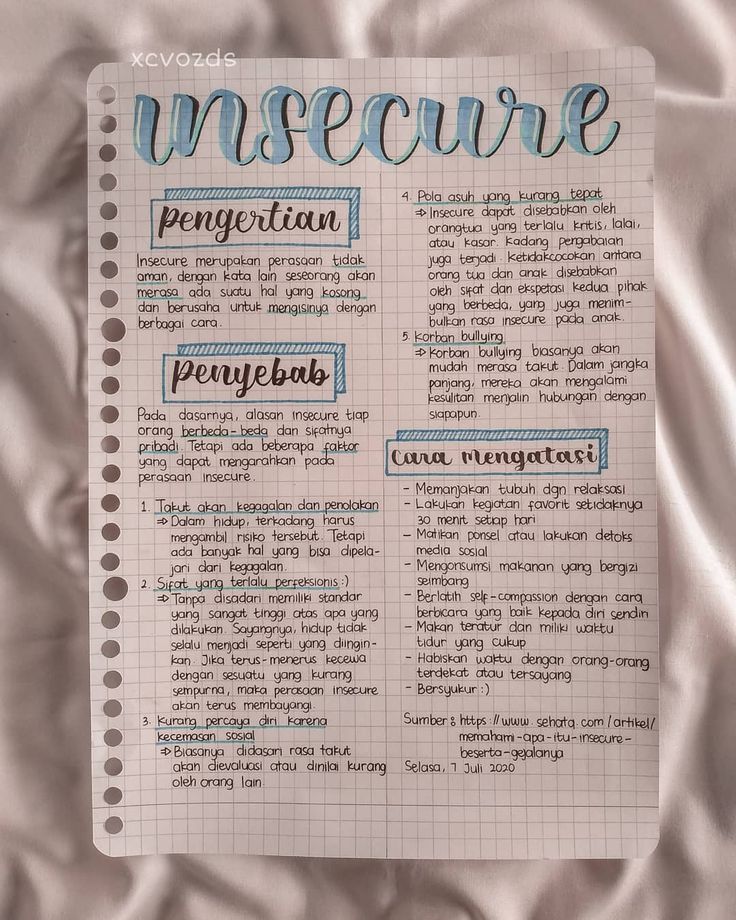 xcvozds
insecure
Pengertian
Insecure merupakan perasaan tidak
aman, dengan kata lain seseorang akan
merasa ada suatu hal yang kosong
dan berusaha untuk mengisinya dengan
berbagai cara.
Penyebab
Pada dasarnya, alasan insecure tiap
orang berbeda-beda dan sifatnya
pribadi. Tetapi ada beberapa faktor
yang dapat mengarahkan pada
perasaan insecure.
1. Takut akan kegagalan dan penolakan
⇒ Dalam hidup, terkadang harus
mengambil risiko tersebut. Tetapi
ada banyak hal yang bisa dipela-
jari dari kegagalan.
2. Sifat yang terlalu perfeksionis :)
⇒ Tanpa disadari memiliki standar
yang sangat tinggi atas apa yang
dilakukan. Sayangnya, hidup tidak
selalu menjadi seperti yang diingin-
kan. Jika terus-menerus kecewa
dengan sesuatu yang kurang
sempurna, maka perasaan insecure
akan terus membayangi.
3. Kurang percaya diri karena
kecemasan sosial
⇒ Biasanya didasari rasa takut
akan dievaluasi atau dinilai kurang
oleh orang lain.
4. Pola asuh yang kurang tepat
⇒ Insecure dapat disebabkan oleh
orangtua yang terlalu kritis, lalai,
atau kasar. Kadang pengabaian
juga terjadi. Ketidakcocokan antara
orang tua dan anak disebabkan
oleh sifat dan ekspetasi kedua pihak
yang berbeda, yang juga menim-
bulkan rasa insecure pada anak.
5. Korban bullying
⇒ Korban bullying biasanya akan
mudah merasa takut. Dalam jangka
panjang, mereka akan mengalami
kesulitan menjalin hubungan dengan
siapapun.
Cara mengatasi
- Memanjakan tubuh dgn relaksasi
- Lakukan kegiatan favorit setidaknya
30 menit setiap hari
- Matikan ponsel atau lakukan detoks
media sosial
- Mengonsumsi makanan yang bergizi
seimbang
- Berlatih self-compassion dengan cara
berbicara yang baik kepada diri sendiri
- Makan teratur dan miliki waktu
tidur yang cukup
- Habiskan waktu dengan orang-orang
terdekat atau tersayang
- Bersyukur :)
Sumber : https://www.sehatq.com/artikel/
memahami-apa-itu-insecure-
beserta-gejalanya
Selasa, 7 Juli 2020